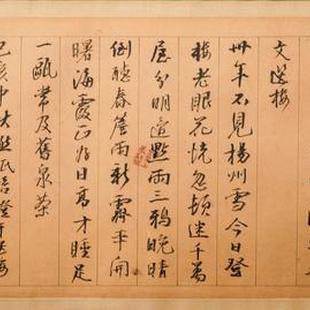 文選樓
卅年不見楊州雪今日登
樓老眼花恍忽頓迷千萬
屋分明遠點雨三鴉晚晴
倒聽春簷雨新霽平開
曙海霞正好日高才睡足
一甌常及舊泉茶